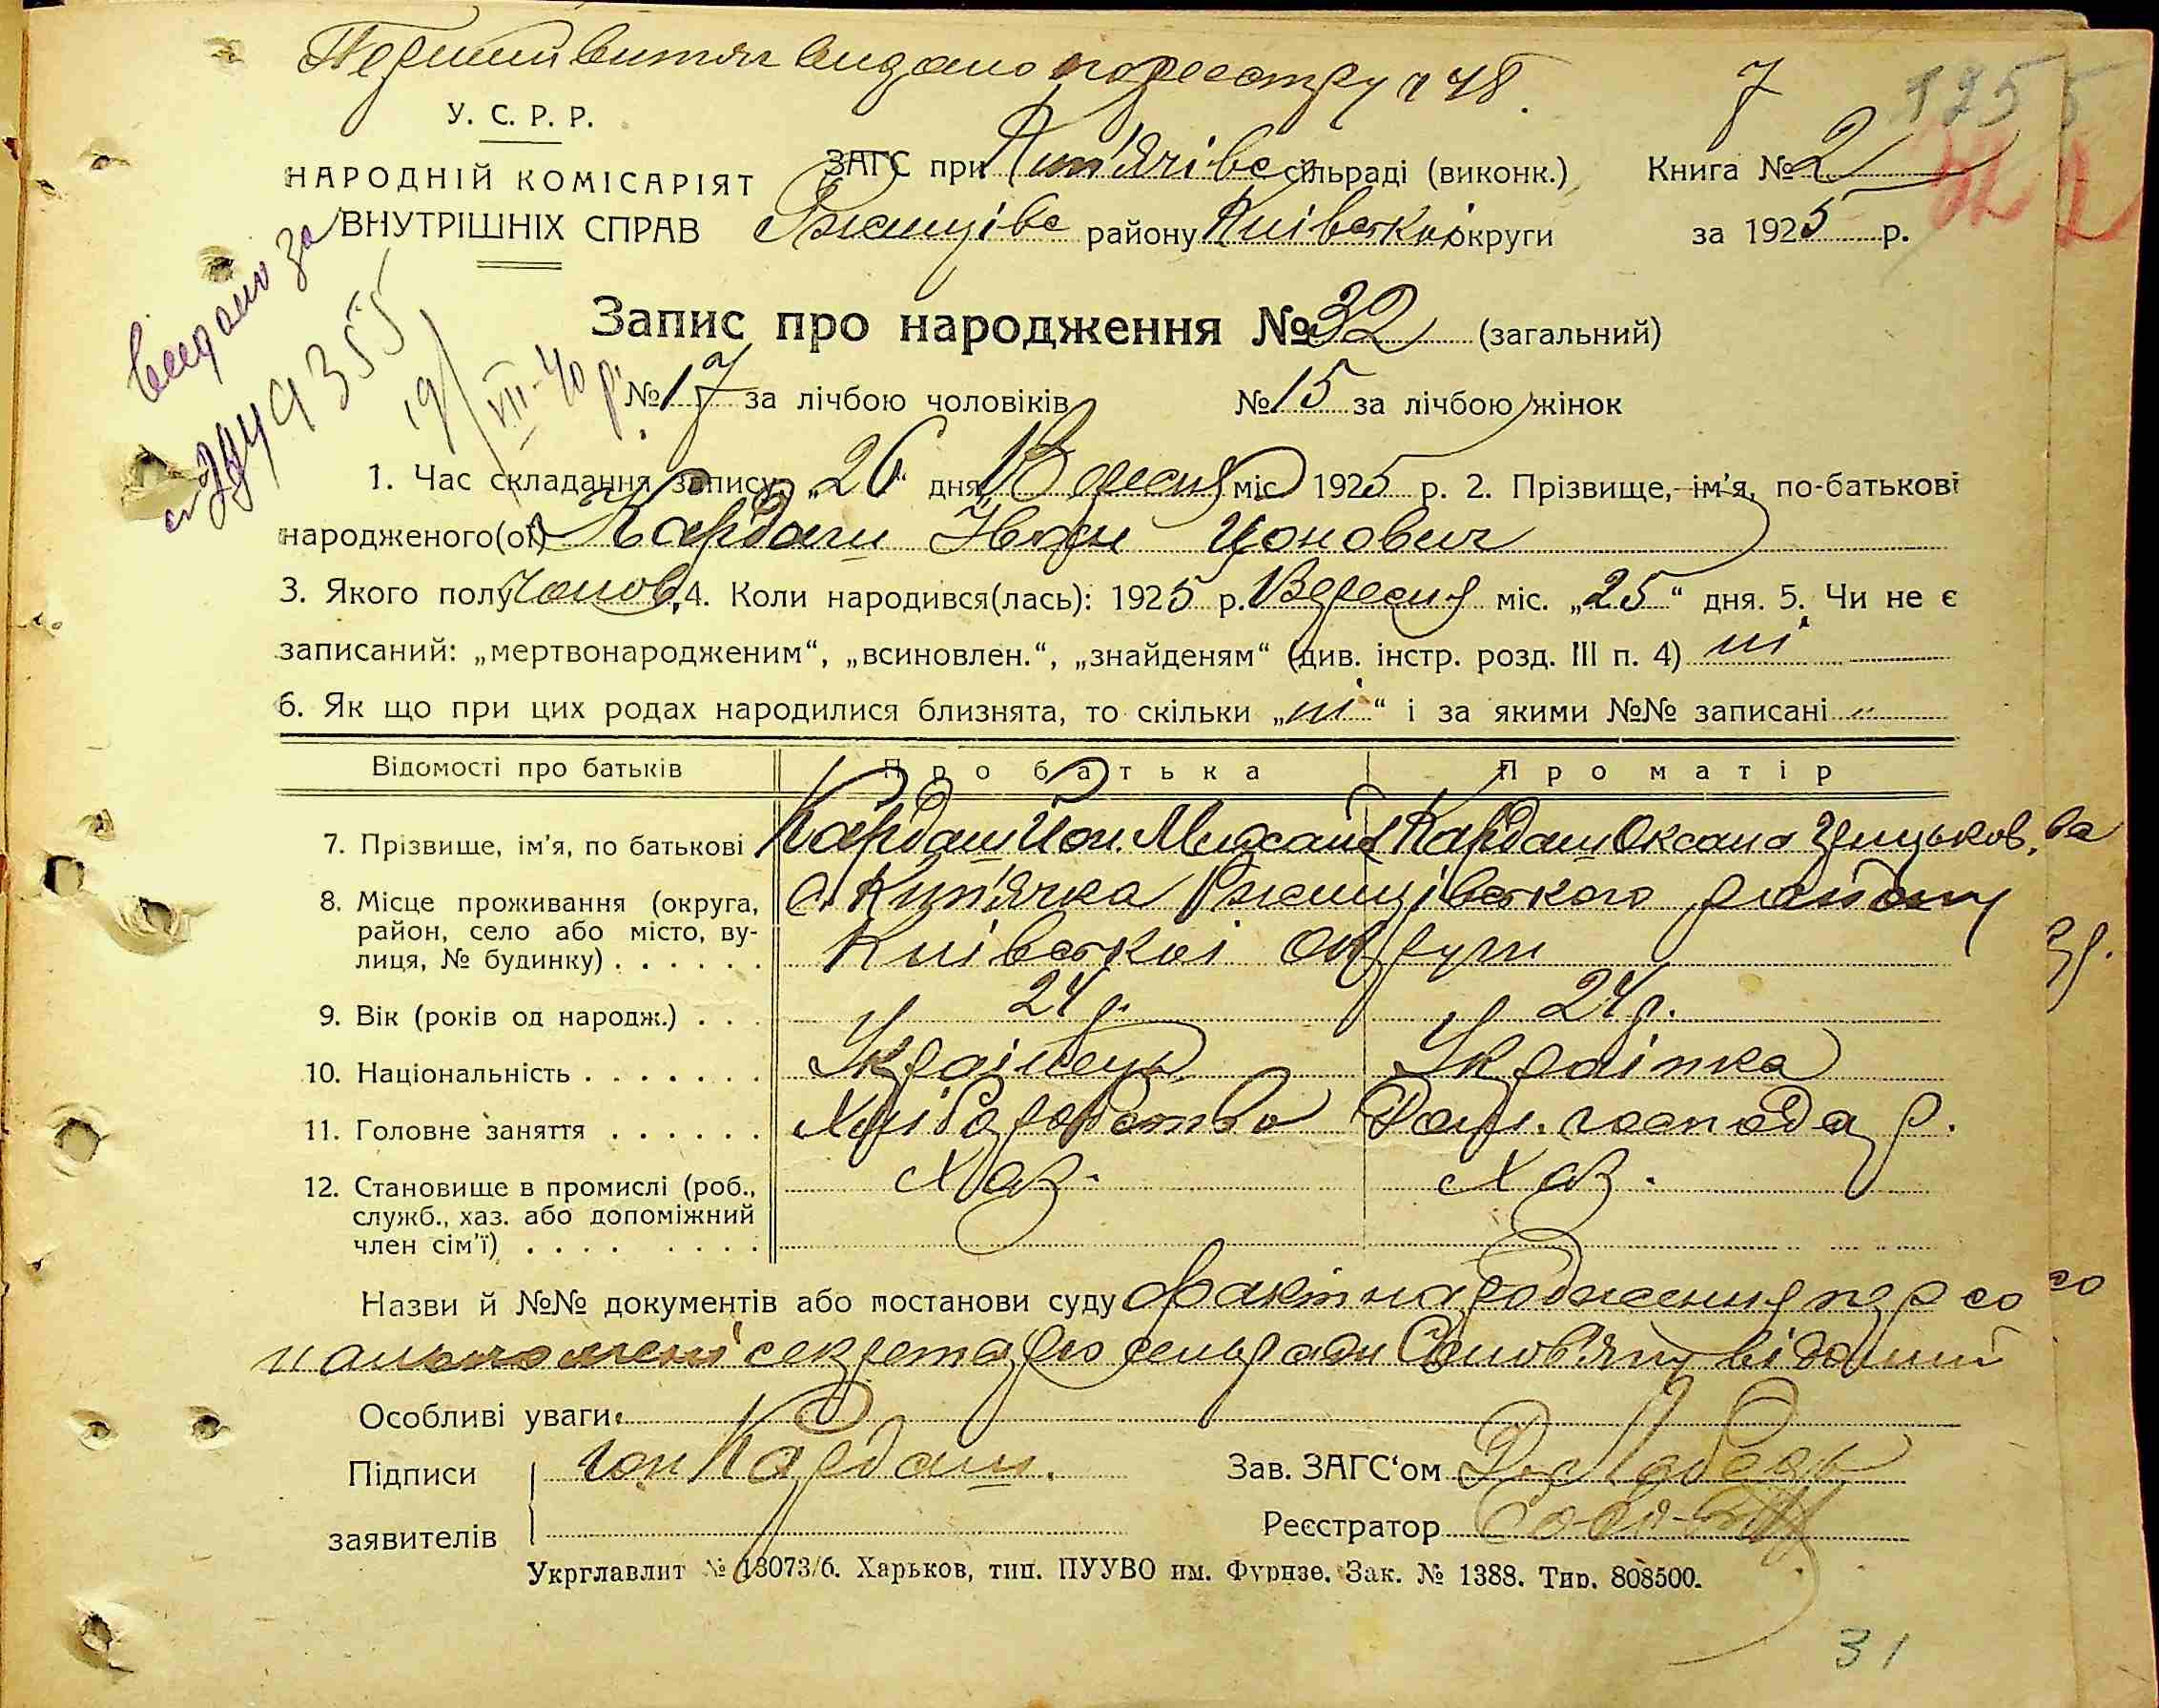 Перший витяг видано по реєстру № 48.
7
1255
У. С. Р. Р.
НАРОДНІЙ КОМІСАРІЯТ
ВНУТРІШНІХ СПРАВ
ЗАГС при Куп'ячівс сільраді (виконк.)
Книга № 2
Ржищівс району Київської округи
за 1925 р.
32
видано за
9355
19/VII-40 р.
Запис про народження № 32 (загальний)
№ 17 за лічбою чоловіків
№ 15 за лічбою жінок
1. Час складання запису „26“ дня Вересня міс 1925 р. 2. Прізвище, ім'я, по-батькові
народженого(ої) Кардаш Іван Йонович
3. Якого полу чолов, 4. Коли народився(лась): 1925 р. Вересня міс. „25“ дня. 5. Чи не є
записаний: „мертвонародженим“, „всиновлен.“, „знайденям“ (див. інстр. розд. III п. 4) ні
6. Як що при цих родах народилися близнята, то скільки „ні“ і за якими №№ записані "
Відомості про батьків
Про батька
Про матір
7. Прізвище, ім'я, по батькові
Кардаш Йон. Михайл
Кардаш Оксана Грицьков.
8. Місце проживання (округа,
район, село або місто, ву-
лиця, № будинку) . . . . . .
с. Куп'ячка Ржищівського району
Київської округи
9. Вік (років од народж.) . . .
24 р.
24 р.
10. Національність . . . . . . .
Українець
Українка
11. Головне заняття . . . . . .
Хліборобство
Дом. господар.
12. Становище в промислі (роб.,
служб., хаз. або допоміжний
член сім'ї) . . . . . . . .
Хаз.
Хаз.
Назви й №№ документів або постанови суду факт народження персо
нально мені секретарю сельради Соловяну відомий
Особливі уваги:
Підписи
заявителів
Йон Кардаш.
Зав. ЗАГС‘ом
Реєстратор
Укрглавлит № 13073/б. Харьков, тип. ПУУВО им. Фрунзе. Зак. № 1388. Тир. 808500.
31